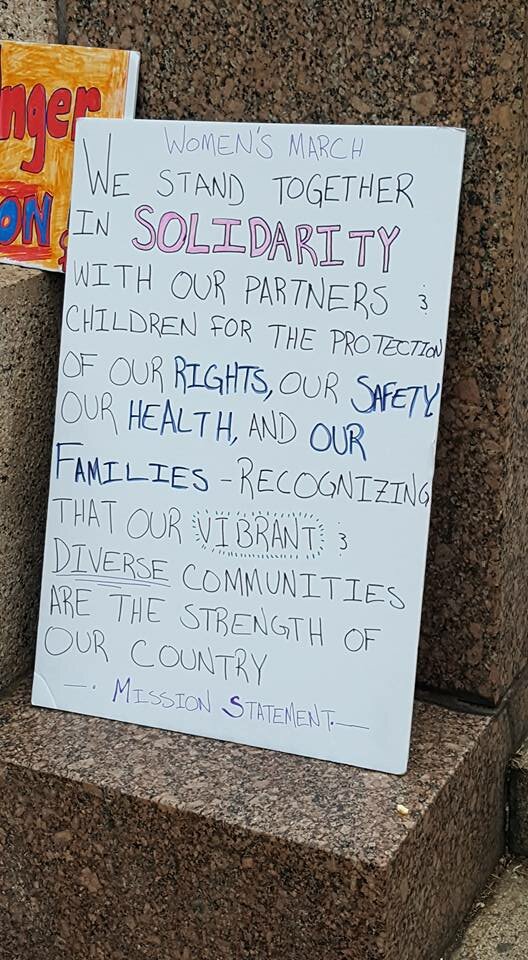 nger
ON
WOMEN'S MARCH
WE STAND TOGETHER
IN SOLIDARITY
WITH OUR PARTNERS &
CHILDREN FOR THE PROTECTION
OF OUR RIGHTS, OUR SAFETY,
OUR HEALTH, AND OUR
FAMILIES - RECOGNIZING
THAT OUR VIBRANT &
DIVERSE COMMUNITIES
ARE THE STRENGTH OF
OUR COUNTRY
—. MISSION STATEMENT.—